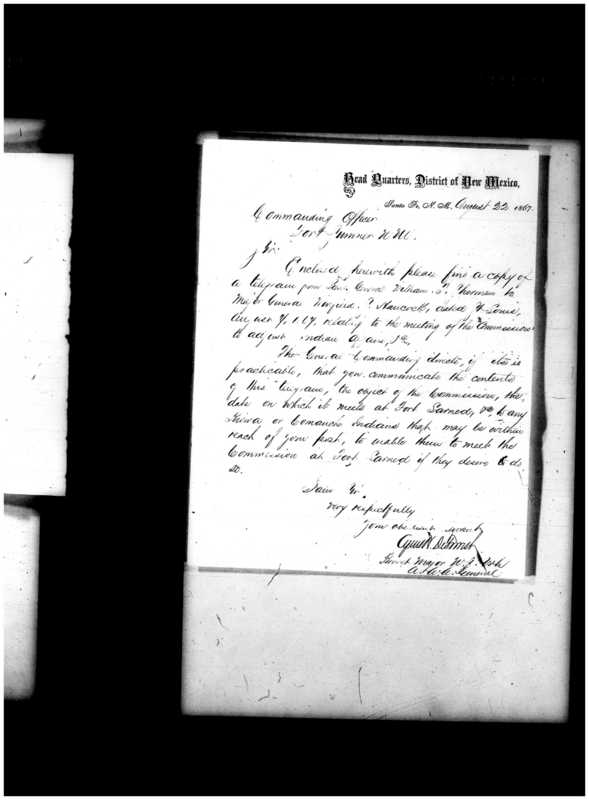 Head Quarters, District of New Mexico,
Santa Fe, N. M. August 22 1867.
Commanding Officer
Fort Sumner N.M.
Sir:
Enclosed herewith please find a copy of
a telegram from Lieut. General William T. Sherman to
Major General Winfield S. Hancock, dated St Louis,
August 1867, relating to the meeting of the Commission
to adjust Indian affairs, &c,
The General Commanding directs, if it is
practicable, that you communicate the contents
of this telegram, the object of the Commission, the
date on which it meets at Fort Larned, &c, to any
Kiowa or Comanche Indians that may be within
reach of your post, to enable them to meet the
Commission at Fort Larned if they desire to do
so.
I am Sir,
Very respectfully
Your obedient servant
Cyrus H. De Forrest
Brevet Major U.S. Vols
A.A.A. General